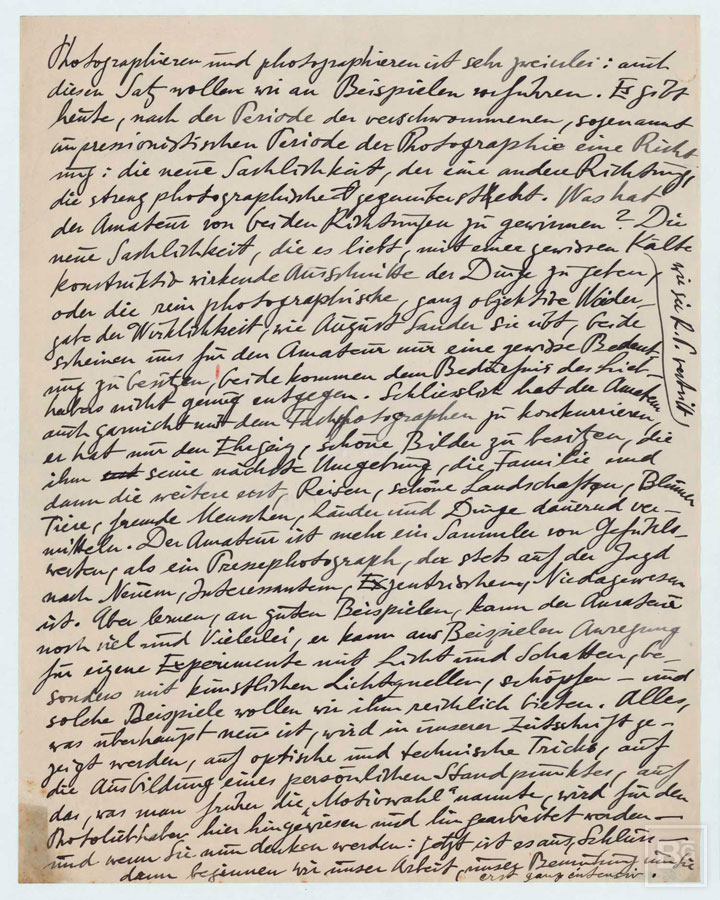 Photographieren und photographieren ist sehr zweierlei: auch
diesen Satz wollen wir an Beispielen vorführen. Es gibt
heute, nach der Periode der verschwommenen, sogenannt
impressionistischen Periode der Photographie eine Richt
ung: die neue Sachlichkeit, der eine andere Richtung,
die streng photographische gegenübersteht. Was hat
der Amateur von beiden Richtungen zu gewinnen? Die
neue Sachlichkeit, die es liebt, mit einer gewissen Kälte
konstruktiv wirkende Ausschnitte der Dinge zu geben,
wie sie R.P. vertritt
oder die rein photographische, ganz objektive Wieder-
gabe der Wirklichkeit, wie August Sander sie übt, beide
scheinen uns für den Amateur nur eine gewisse Bedeut-
ung zu besitzen, beide kommen dem Bedürfnis des Lieb-
habers nicht genug entgegen. Schliesslich hat der Amateur
auch garnicht mit dem Fachphotographen zu konkurrieren,
er hat nur den Ehrgeiz, schöne Bilder zu besitzen, die
ihm seine nächste Umgebung, die Familie und
dann die weitere erst, Reisen, schöne Landschaften, Blumen
Tiere, fremde Menschen, Länder und Dinge dauernd ver-
mitteln. Der Amateur ist mehr ein Sammler von Gefühls-
werten, als ein Pressephotograph, der stets auf der Jagd
nach Neuem, Interessantem, Exzentrischem, Niedagewesen
ist. Aber lernen, an guten Beispielen, kann der Amateur
noch viel und Vielerlei, er kann aus Beispielen Anregung
für eigene Experimente mit Licht und Schatten, be-
sonders mit künstlichen Lichtquellen, schöpfen – und
solche Beispiele wollen wir ihm reichlich bieten. Alles,
was überhaupt neu ist, wird in unserer Zeitschrift ge-
zeigt werden, auf optische und technische Tricks, auf
die Ausbildung eines persönlichen Standpunktes, auf
das, was man früher die „Motivwahl" nannte, wird für den
Photoliebhaber hier hingewiesen und hingearbeitet werden –
und wenn Sie nun denken werden: jetzt ist es aus, Schluss –
dann beginnen wir unser Arbeit, unser Bemühung um Sie
erst ganz intensiv.